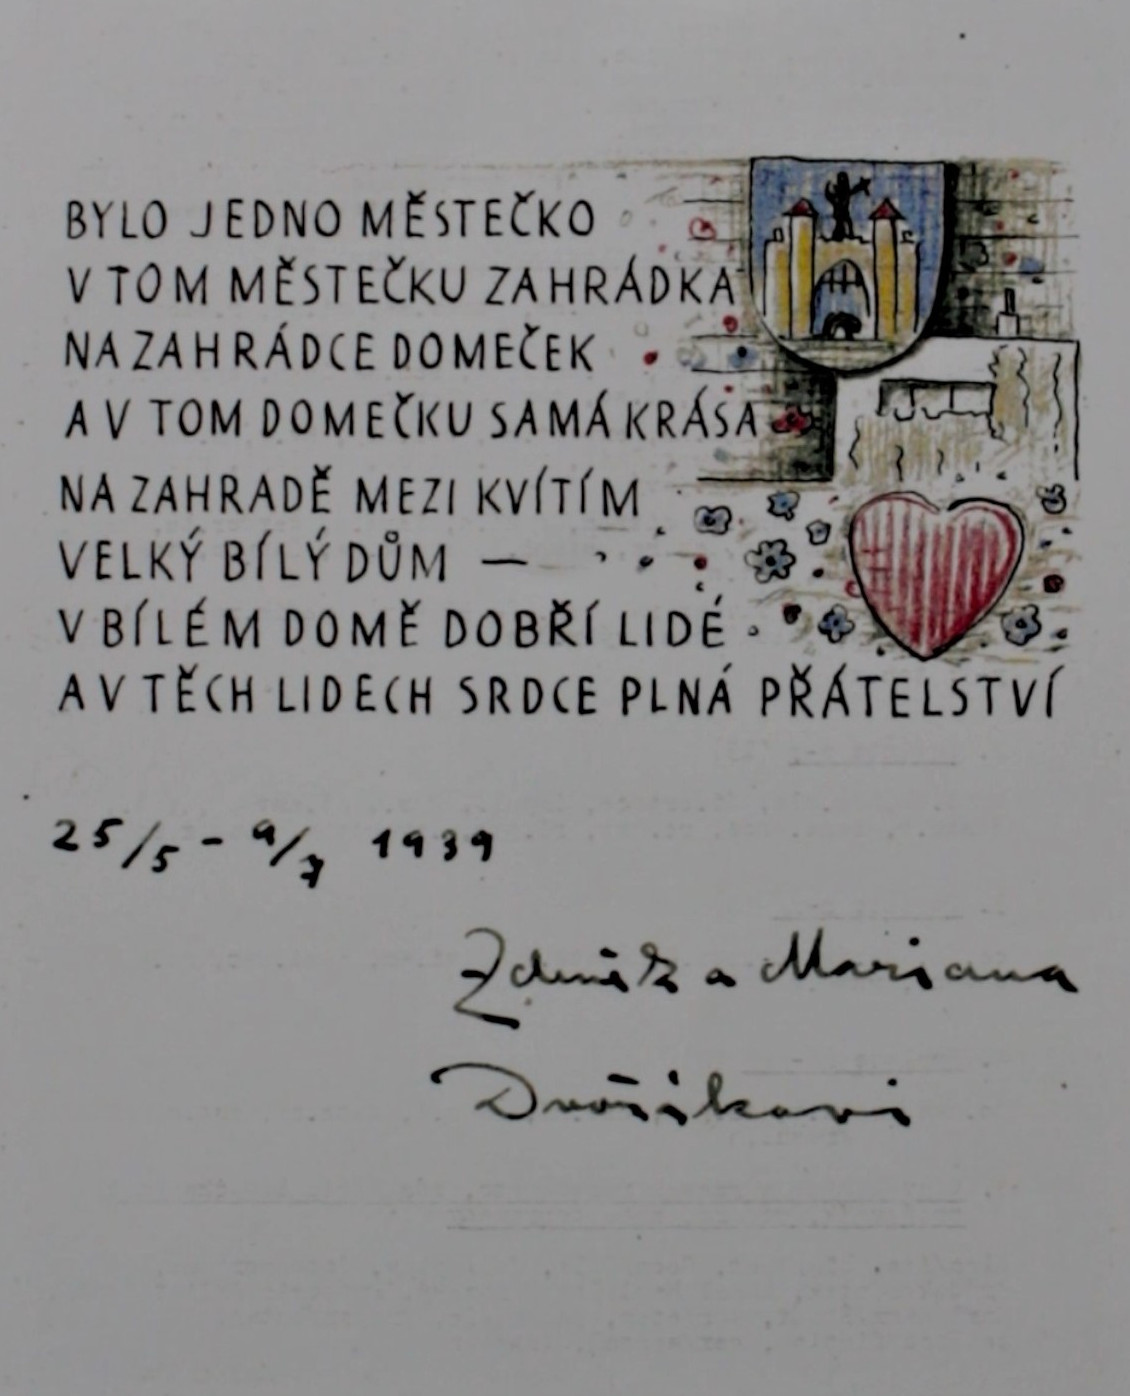 BYLO JEDNO MĚSTEČKO
V TOM MĚSTEČKU ZAHRÁDKA
NA ZAHRÁDCE DOMEČEK
A V TOM DOMEČKU SAMÁ KRÁSA
NA ZAHRADĚ MEZI KVÍTÍM
VELKÝ BÍLÝ DŮM —
V BÍLÉM DOMĚ DOBŘÍ LIDÉ
A V TĚCH LIDECH SRDCE PLNÁ PŘÁTELSTVÍ
25/5 - 9/7 1939
Zdeněk a Mariana
Dvořákovi